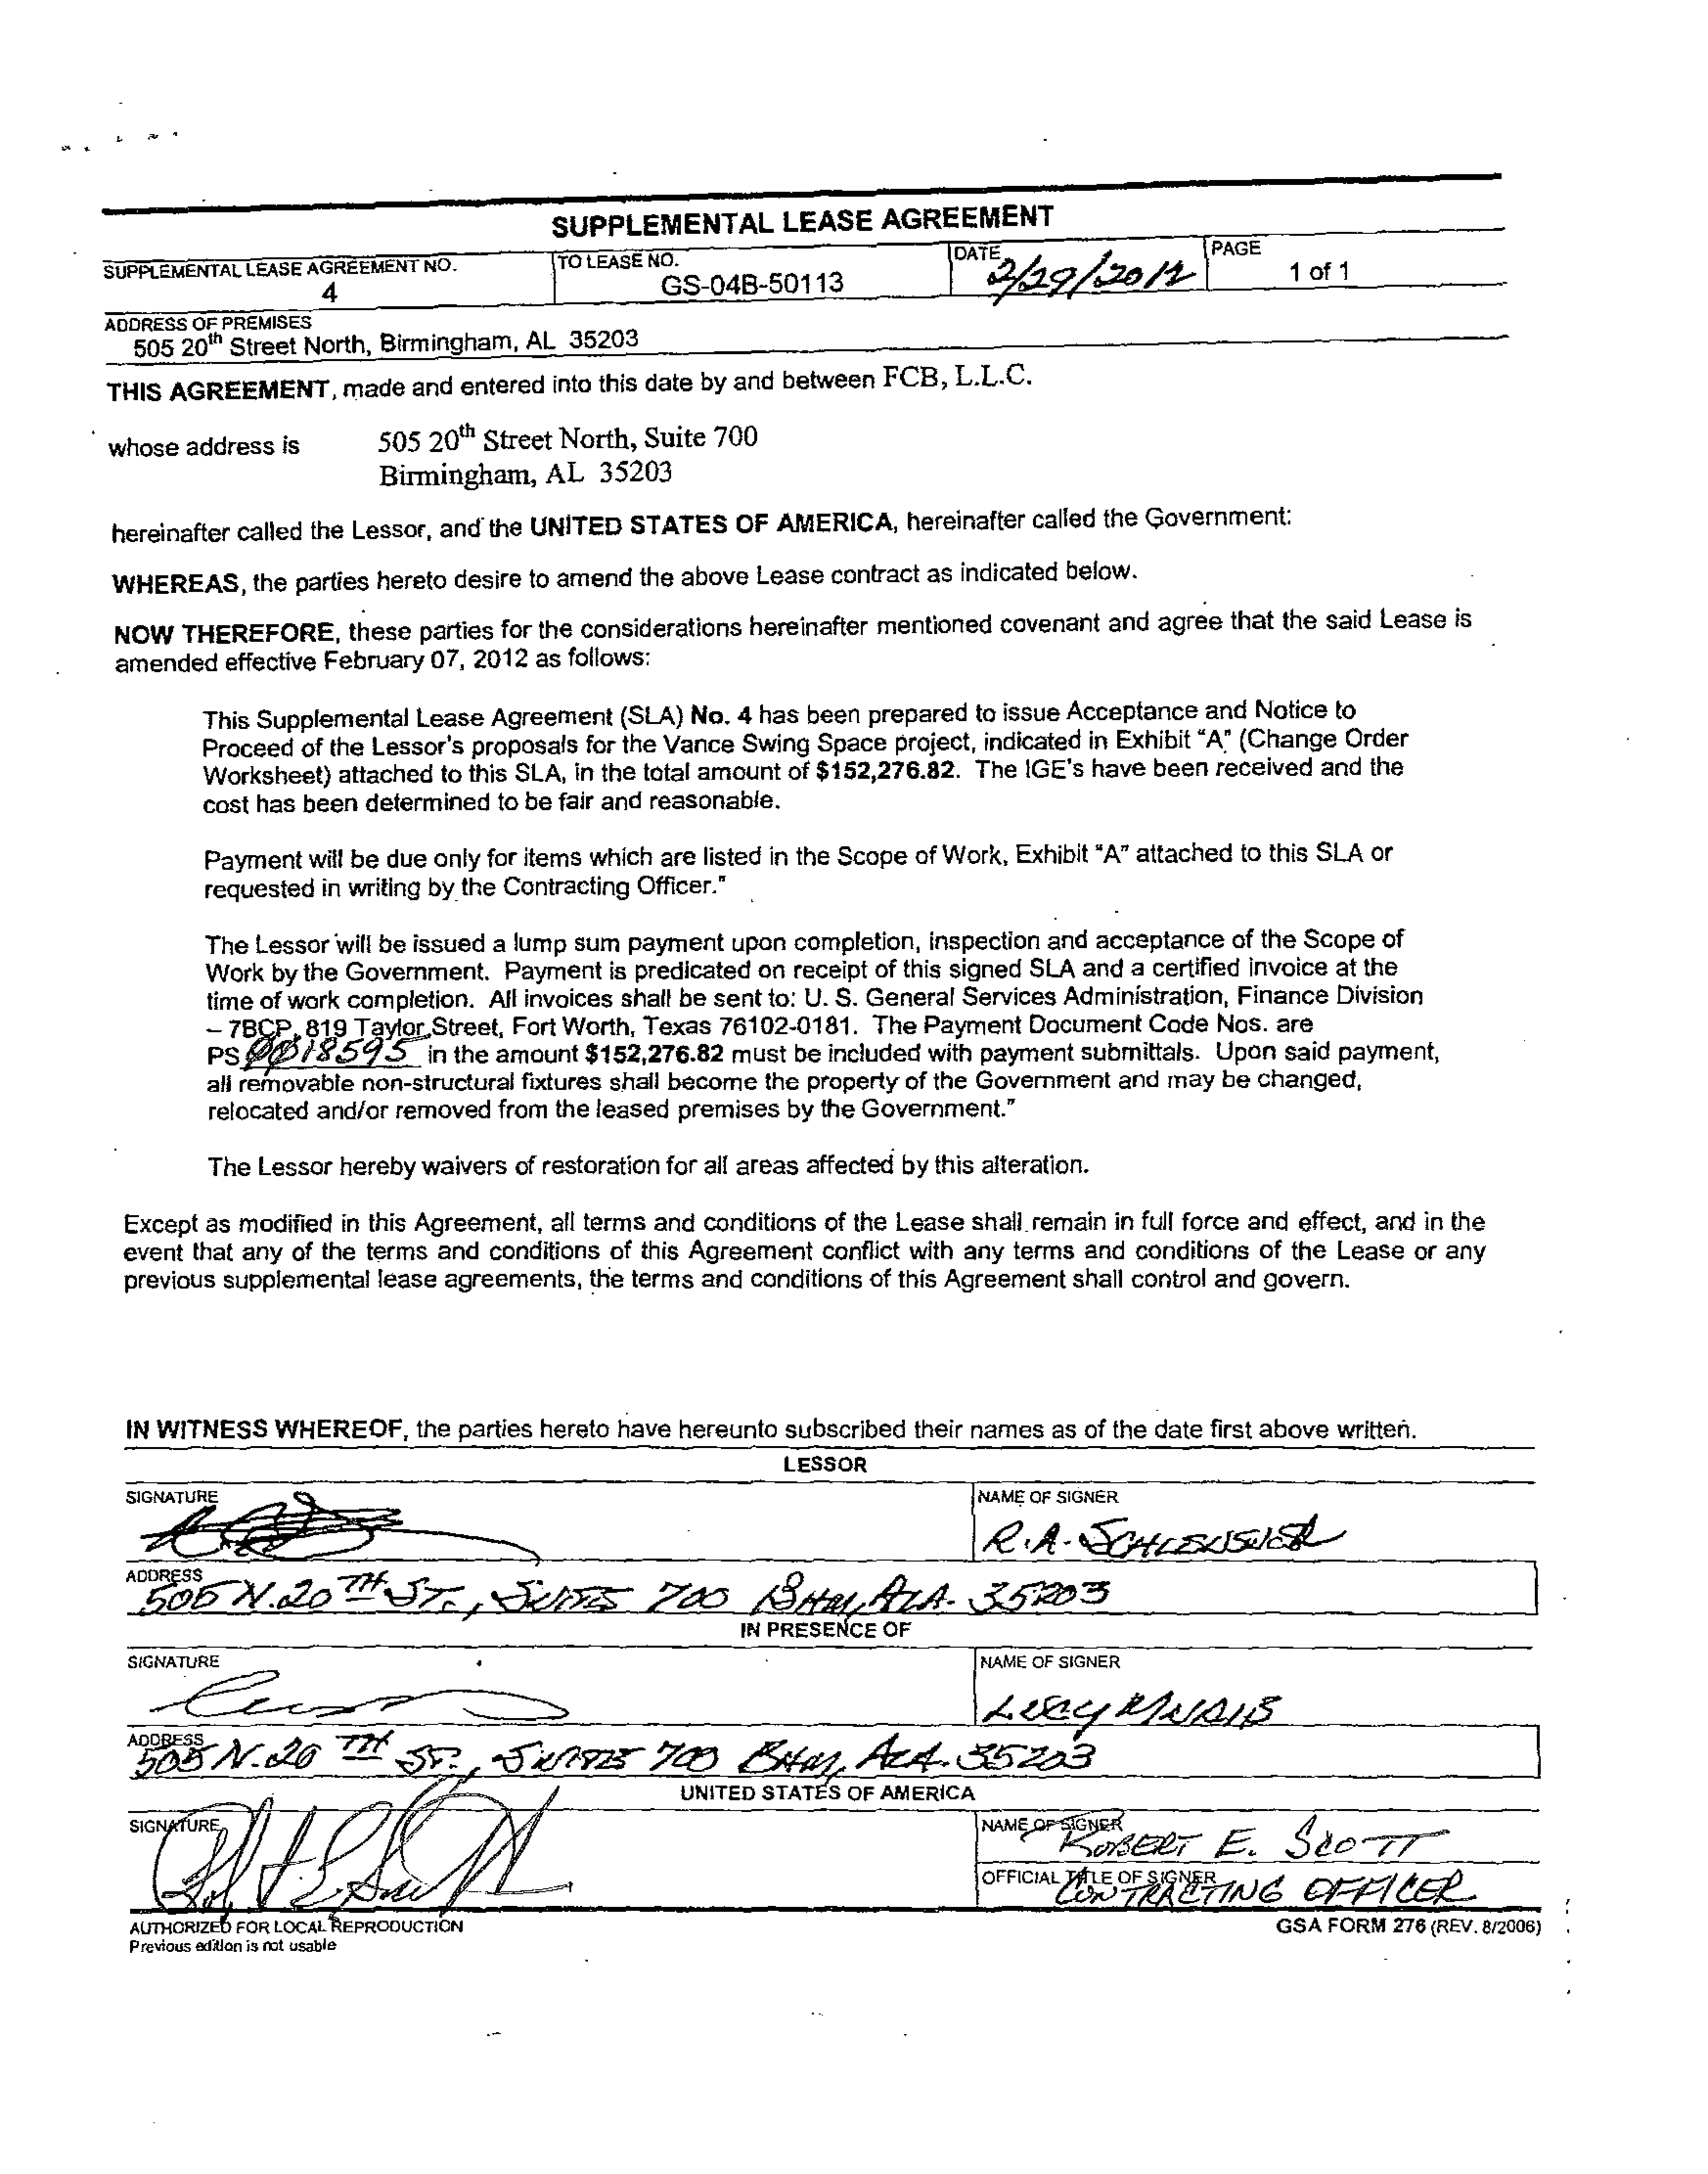 SUPPLEMENTAL LEASE AGREEMENT
SUPPLEMENTAL LEASE AGREEMENT NO.
4
TO LEASE NO.
GS-04B-50113
DATE
2/29/2012
PAGE
1 of 1
ADDRESS OF PREMISES
505 20th Street North, Birmingham, AL 35203
THIS AGREEMENT, made and entered into this date by and between FCB, L.L.C.
whose address is
505 20th Street North, Suite 700
Birmingham, AL 35203
hereinafter called the Lessor, and the UNITED STATES OF AMERICA, hereinafter called the Government:
WHEREAS, the parties hereto desire to amend the above Lease contract as indicated below.
NOW THEREFORE, these parties for the considerations hereinafter mentioned covenant and agree that the said Lease is
amended effective February 07, 2012 as follows:
This Supplemental Lease Agreement (SLA) No. 4 has been prepared to issue Acceptance and Notice to
Proceed of the Lessor's proposals for the Vance Swing Space project, indicated in Exhibit "A" (Change Order
Worksheet) attached to this SLA, in the total amount of $152,276.82. The IGE's have been received and the
cost has been determined to be fair and reasonable.
Payment will be due only for items which are listed in the Scope of Work, Exhibit "A" attached to this SLA or
requested in writing by the Contracting Officer."
The Lessor will be issued a lump sum payment upon completion, inspection and acceptance of the Scope of
Work by the Government. Payment is predicated on receipt of this signed SLA and a certified invoice at the
time of work completion. All invoices shall be sent to: U. S. General Services Administration, Finance Division
– 7BCP, 819 Taylor Street, Fort Worth, Texas 76102-0181. The Payment Document Code Nos. are
PS 0018595 in the amount $152,276.82 must be included with payment submittals. Upon said payment,
all removable non-structural fixtures shall become the property of the Government and may be changed,
relocated and/or removed from the leased premises by the Government."
The Lessor hereby waivers of restoration for all areas affected by this alteration.
Except as modified in this Agreement, all terms and conditions of the Lease shall remain in full force and effect, and in the
event that any of the terms and conditions of this Agreement conflict with any terms and conditions of the Lease or any
previous supplemental lease agreements, the terms and conditions of this Agreement shall control and govern.
IN WITNESS WHEREOF, the parties hereto have hereunto subscribed their names as of the date first above written.
LESSOR
SIGNATURE
NAME OF SIGNER
R.A.
ADDRESS
505 N. 20TH ST., SUITE 700 BHM, ALA. 35203
IN PRESENCE OF
SIGNATURE
NAME OF SIGNER
LUCY
ADDRESS
505 N. 20 TH ST., SUITE 700 BHM, ALA. 35203
UNITED STATES OF AMERICA
SIGNATURE
NAME OF SIGNER
ROBERT E. SCOTT
OFFICIAL TITLE OF SIGNER
CONTRACTING OFFICER
AUTHORIZED FOR LOCAL REPRODUCTION
Previous edition is not usable
GSA FORM 276 (REV. 8/2006)